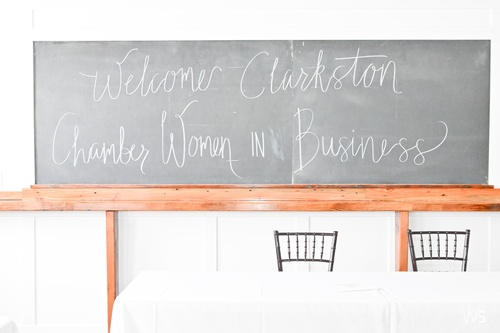 Welcome Clarkston
Chamber Women IN Business
WS